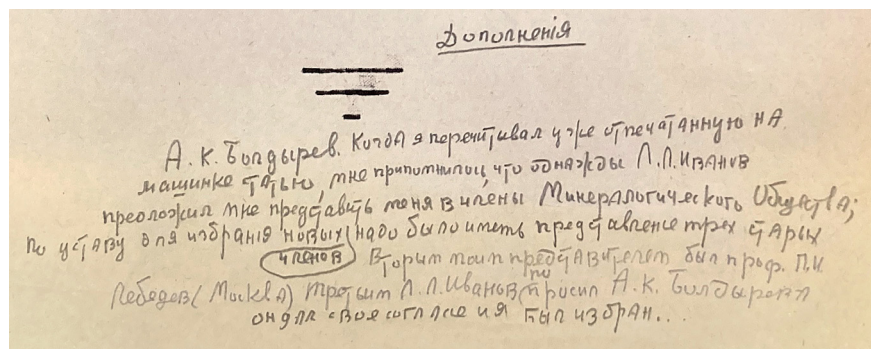 Дополненія
А. К. Болдырев. Когда я перечитывал уже отпечатанную на
машинке статью, мне припомнилось, что однажды Л.Л. Иванов
предложил мне представить меня в члены Минералогического Общества;
по уставу для избранія новых надо было иметь представление трех старых
членов Вторым моим представителем был проф. П.И.
Лебедев (Москва) третьим Л.Л. Иванов попросил А.К. Болдырева
он дал свое согласие и я был избран...